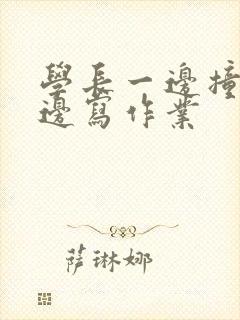 學長一邊撞
邊寫作業
薩琳娜